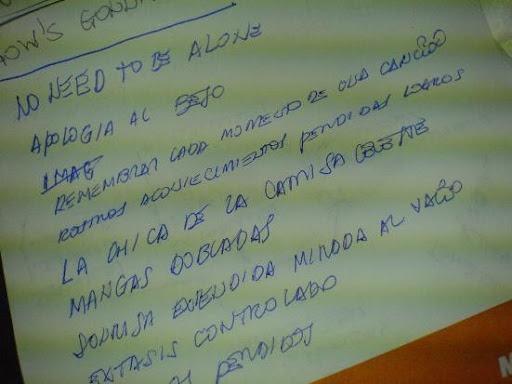 OW'S GONNA
NO NEED TO BE ALONE
APOLOGIA AL BESO
REMEMBRAR CADA MOMENTO DE CADA CANCIÓN
ROSTROS ACONTECIMIENTOS PERDIDAS LOGROS
LA CHICA DE LA CAMISA CELESTE
MANGAS DOBLADAS
SONRISA EXTENDIDA MIRADA AL VACÍO
EXTASIS CONTROLADO
PERDIDOS